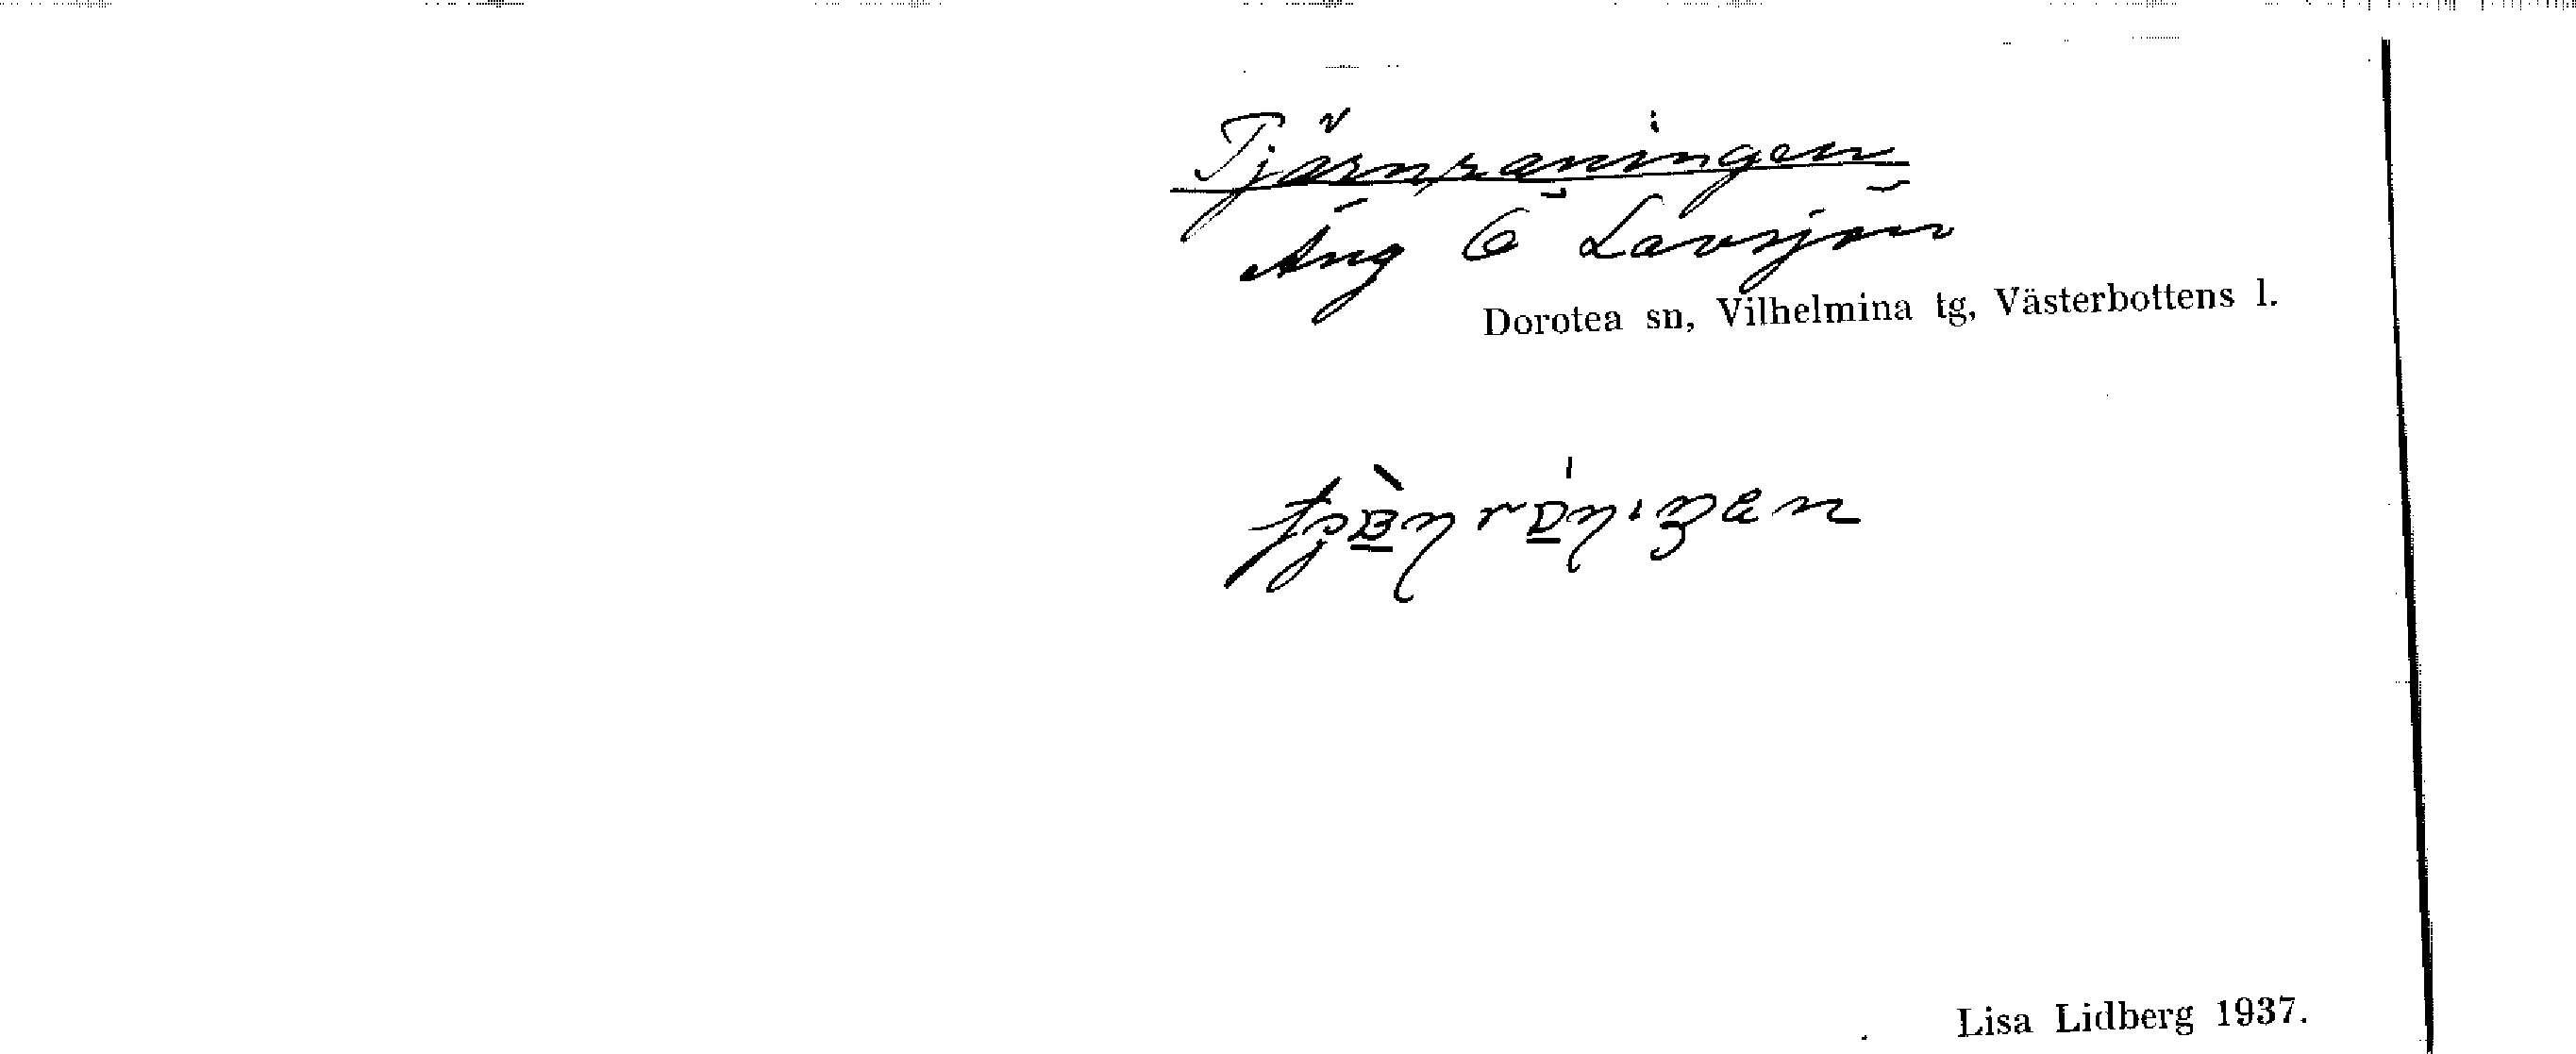 Tjärnraningen
Äng Ö Lavsjön
Dorotea sn, Vilhelmina tg, Västerbottens l.
Lisa Lidberg 1937.